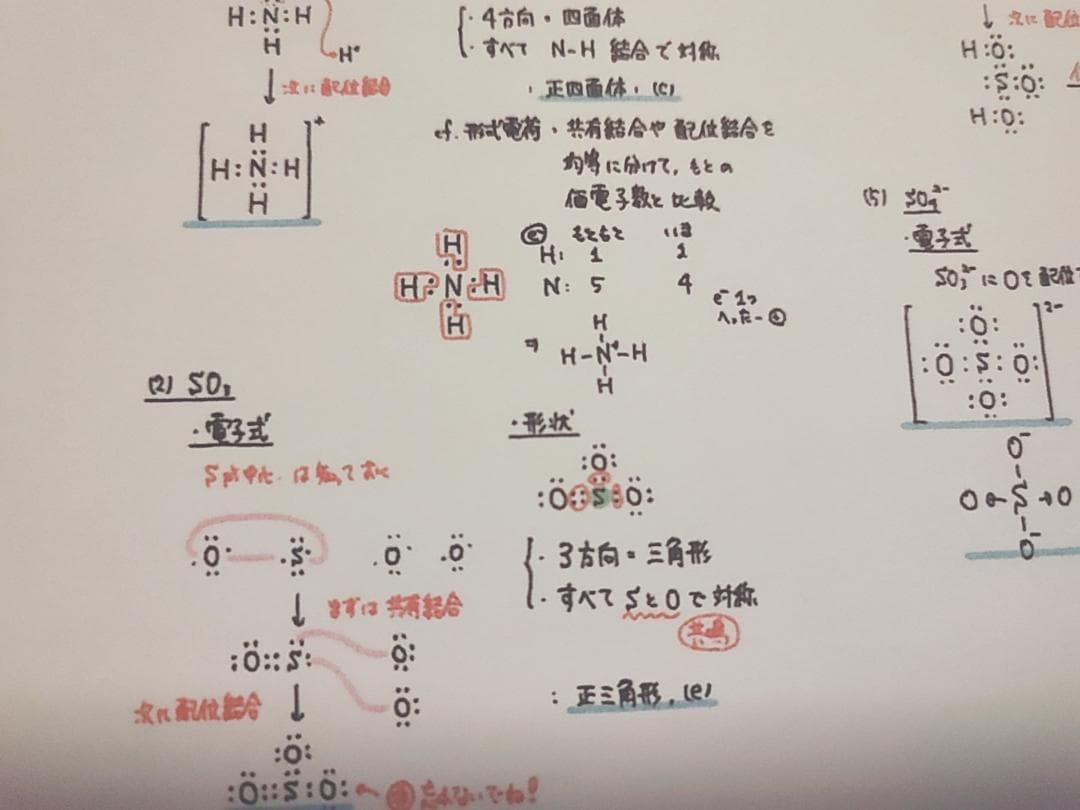 H:N:H
H
H⁺
次に配位結合
[H:N:H]⁺
H
H
・4方向・四面体
・すべて N-H 結合で対称
正四面体,(c)
cf. 形式電荷・共有結合や配位結合を
均等に分けて,もとの
価電子数と比較
H
H:N:H
H
もともと いま
H: 1 1
N: 5 4
e⁻ 1つ
へった
H
H-N⁺-H
H
(2) SO₃
・電子式
・O・ ・S・ ・O・ ・O・
まずは共有結合
:O::S: O:
O:
次に配位結合
:O:
:O::S:O:
忘れないでね!
・形状
:O:
:O::S:O:
・3方向=三角形
・すべてSとOで対称
共鳴
正三角形,(e)
次に配位
H:O:
:S:O:
H:O:
(5) SO₄²⁻
・電子式
SO₃²⁻にOを配位
:O:
:O:S:O:
:O:
2-
O⁻
O←S→O
O⁻